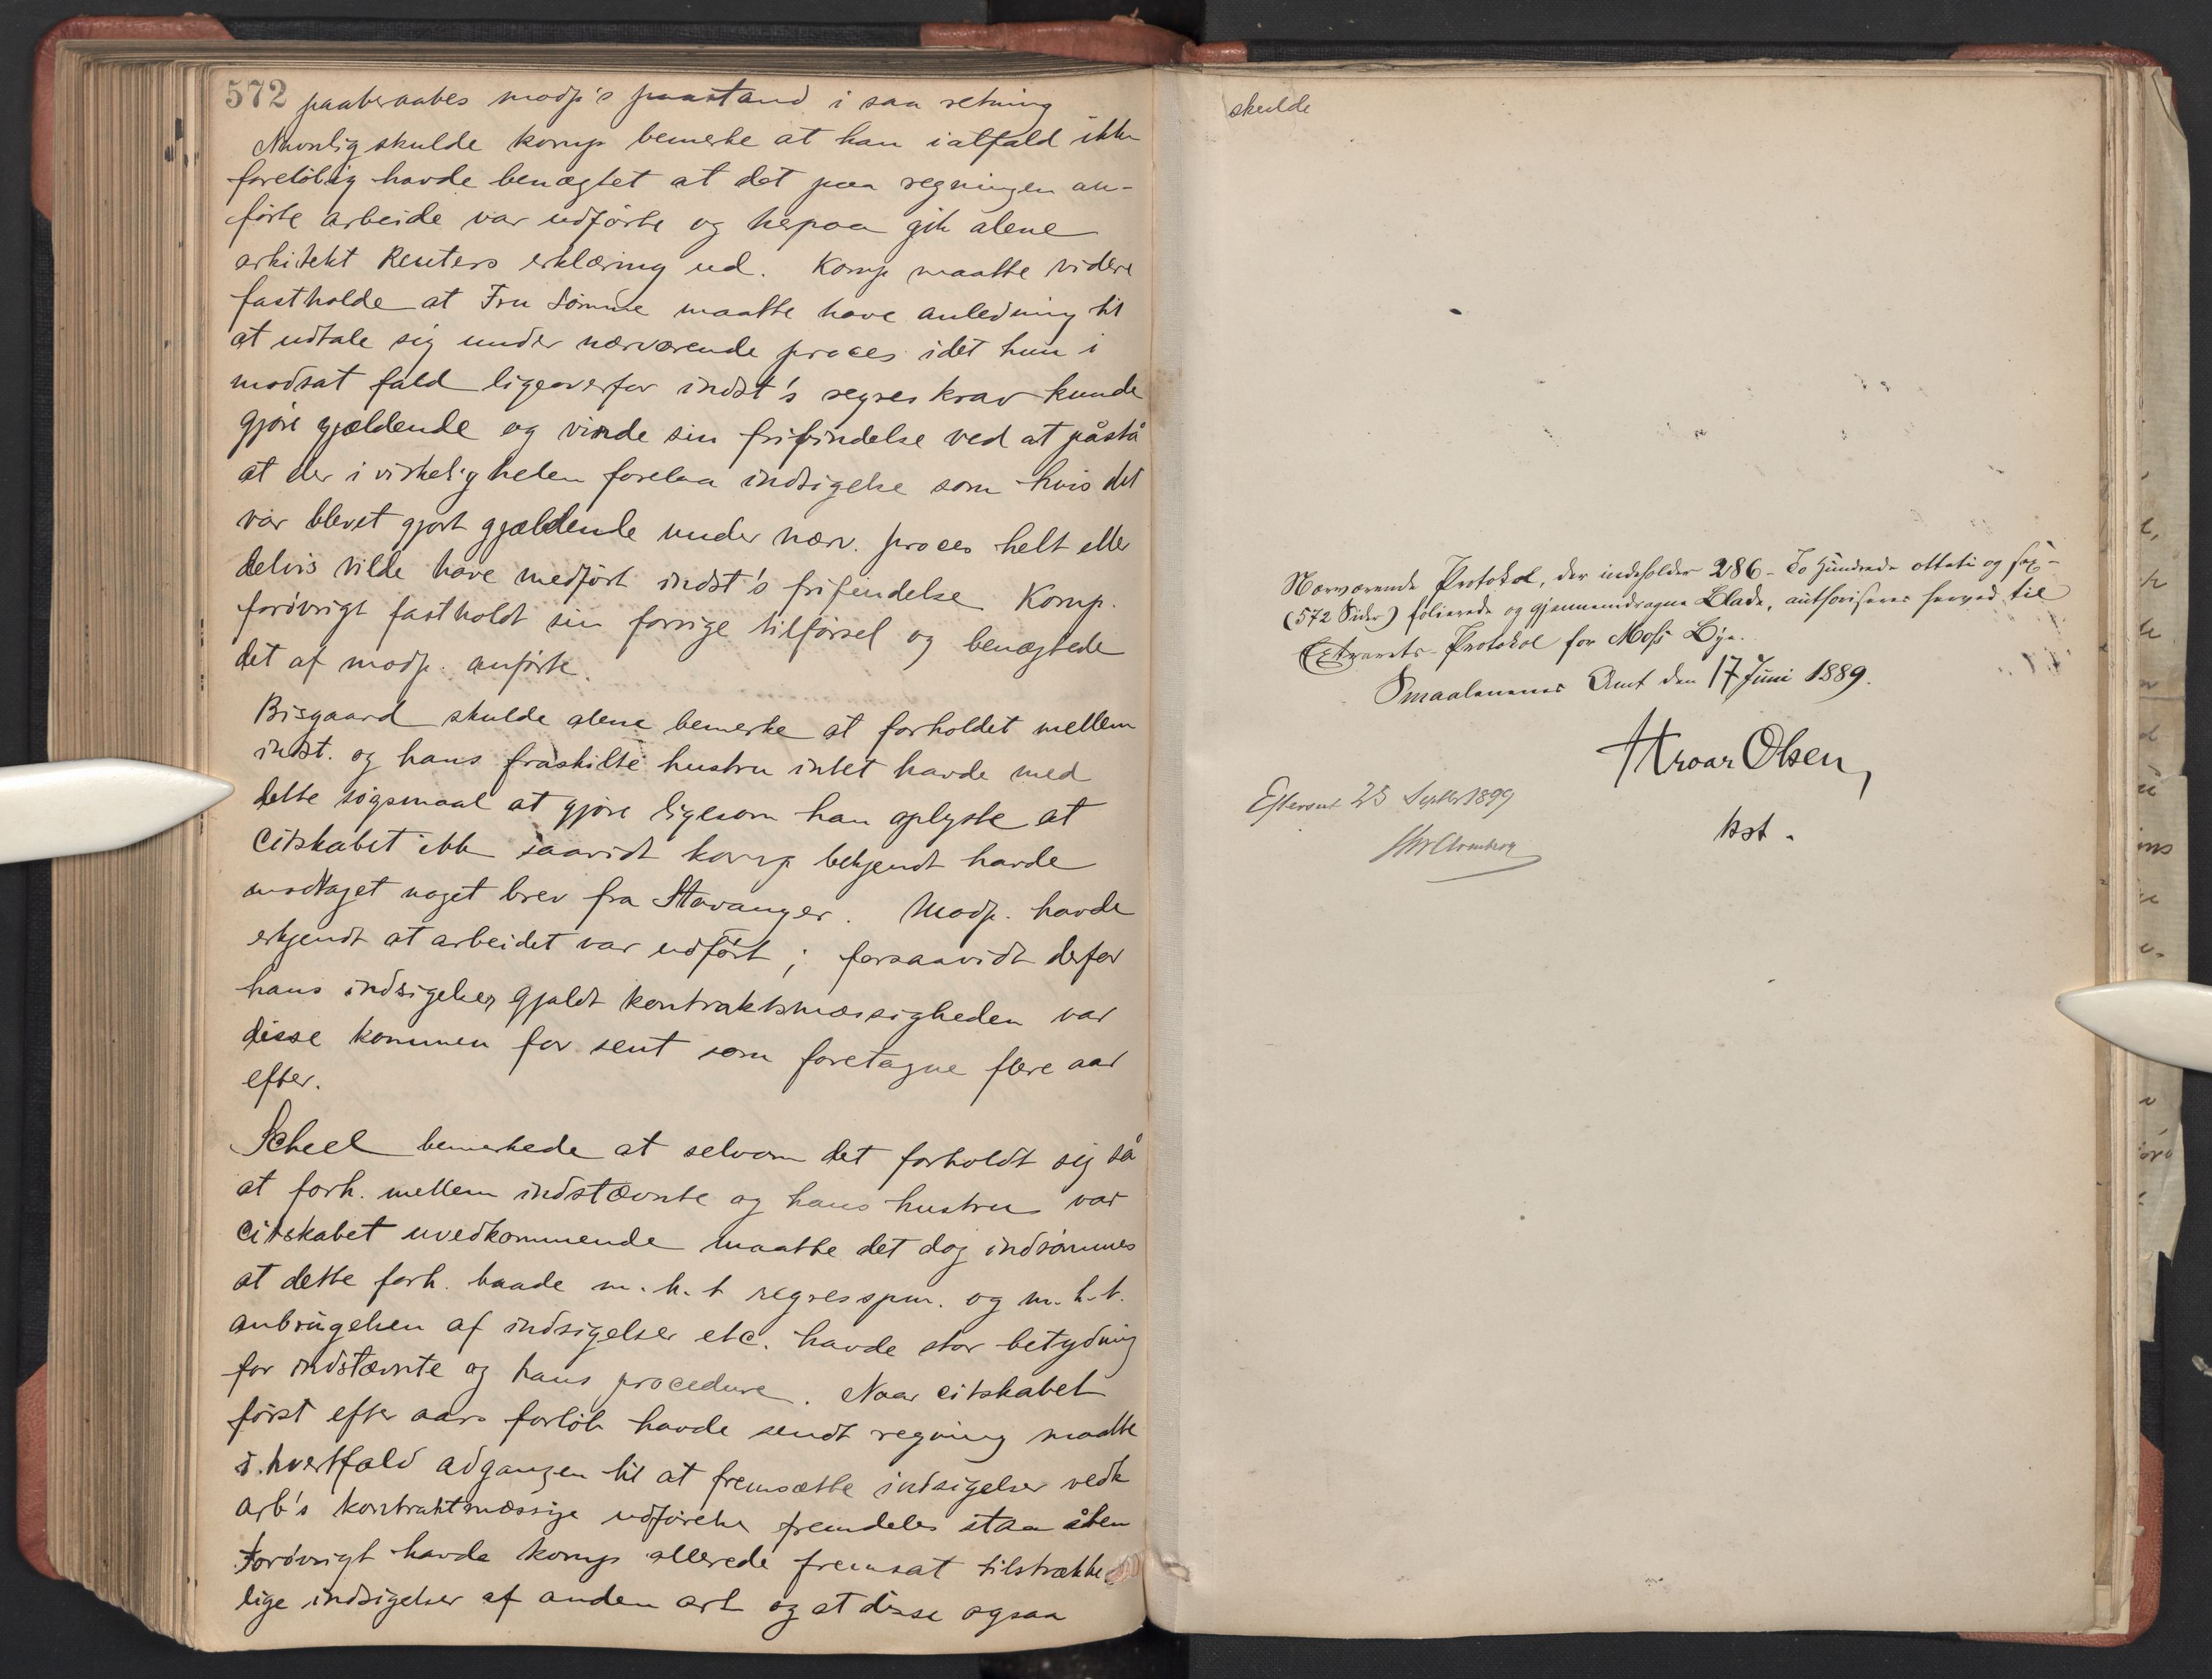 572 paaberaabes modp's paastand i saa retning
Navnlig skulde komp bemerke at han ialfald ikke
foreløbig havde benægtet at det paa regningen an-
førte arbeide var udførte og herpaa gik alene
arkitekt Reuters erklæring ud. Komp maatte videre
fastholde at Fru Sømme maatte have anledning til
at udtale sig under nærværende proces idet hun i
modsat fald ligeoverfor indst's regreskrav kunde
gjøre gjældende og vinde sin frifindelse ved at påstå
at der i virkeligheden forelaa indsigelse som hvis det
var blevet gjort gjældende under nærv. proces helt eller
delvis vilde have medført indst's frifindelse Komp.
forøvrigt fastholdt sin forrige tilførsel og benægtede
det af modp. anførte.
Bisgaard skulde alene bemerke at forholdet mellem
indst. og hans fraskilte hustru intet havde med
dette søgsmaal at gjøre ligesom han oplyste at
Citskabet ikke saavidt komp bekjendt havde
modtaget noget brev fra Stavanger. Modp. havde
erkjendt at arbeidet var udført; forsaavidt derfor
hans indsigelser gjaldt kontraktsmæssigheden var
disse kommen for sent som foretagne flere aar
efter.
Scheel bemerkede at selvom det forholdt sig så
at forh. mellem indstævnte og hans hustru var
Citskabet uvedkommende maatte det dog indrømmes
at dette forh. baade m.h.t regresspm. og m.h.t.
anbringelsen af indsigelser etc. havde stor betydning
for indstævnte og hans procedure. Naar citskabet
først efter aars forløb havde sendt regning maatte
i hvertfald adgangen til at fremsætte indsigelser vedk
arb's kontraktmæssige udførelse fremdeles staa åben
Forøvrigt havde komp allerede fremsat tilstrække
lige indsigelser af anden art og at disse ogsaa
skulde
Nærværende Protokol, der indeholder 286 - To Hundrede otteti og sex -
(572 Sider) folierede og gjennemdragne Blade, authoriseres herved til
Extrarets-Protokol for Moss Bye.
Smaalenenes Amt den 17 Juni 1889.
Hroar Olsen,
kst.
Efterseet 25 Septbr 1899